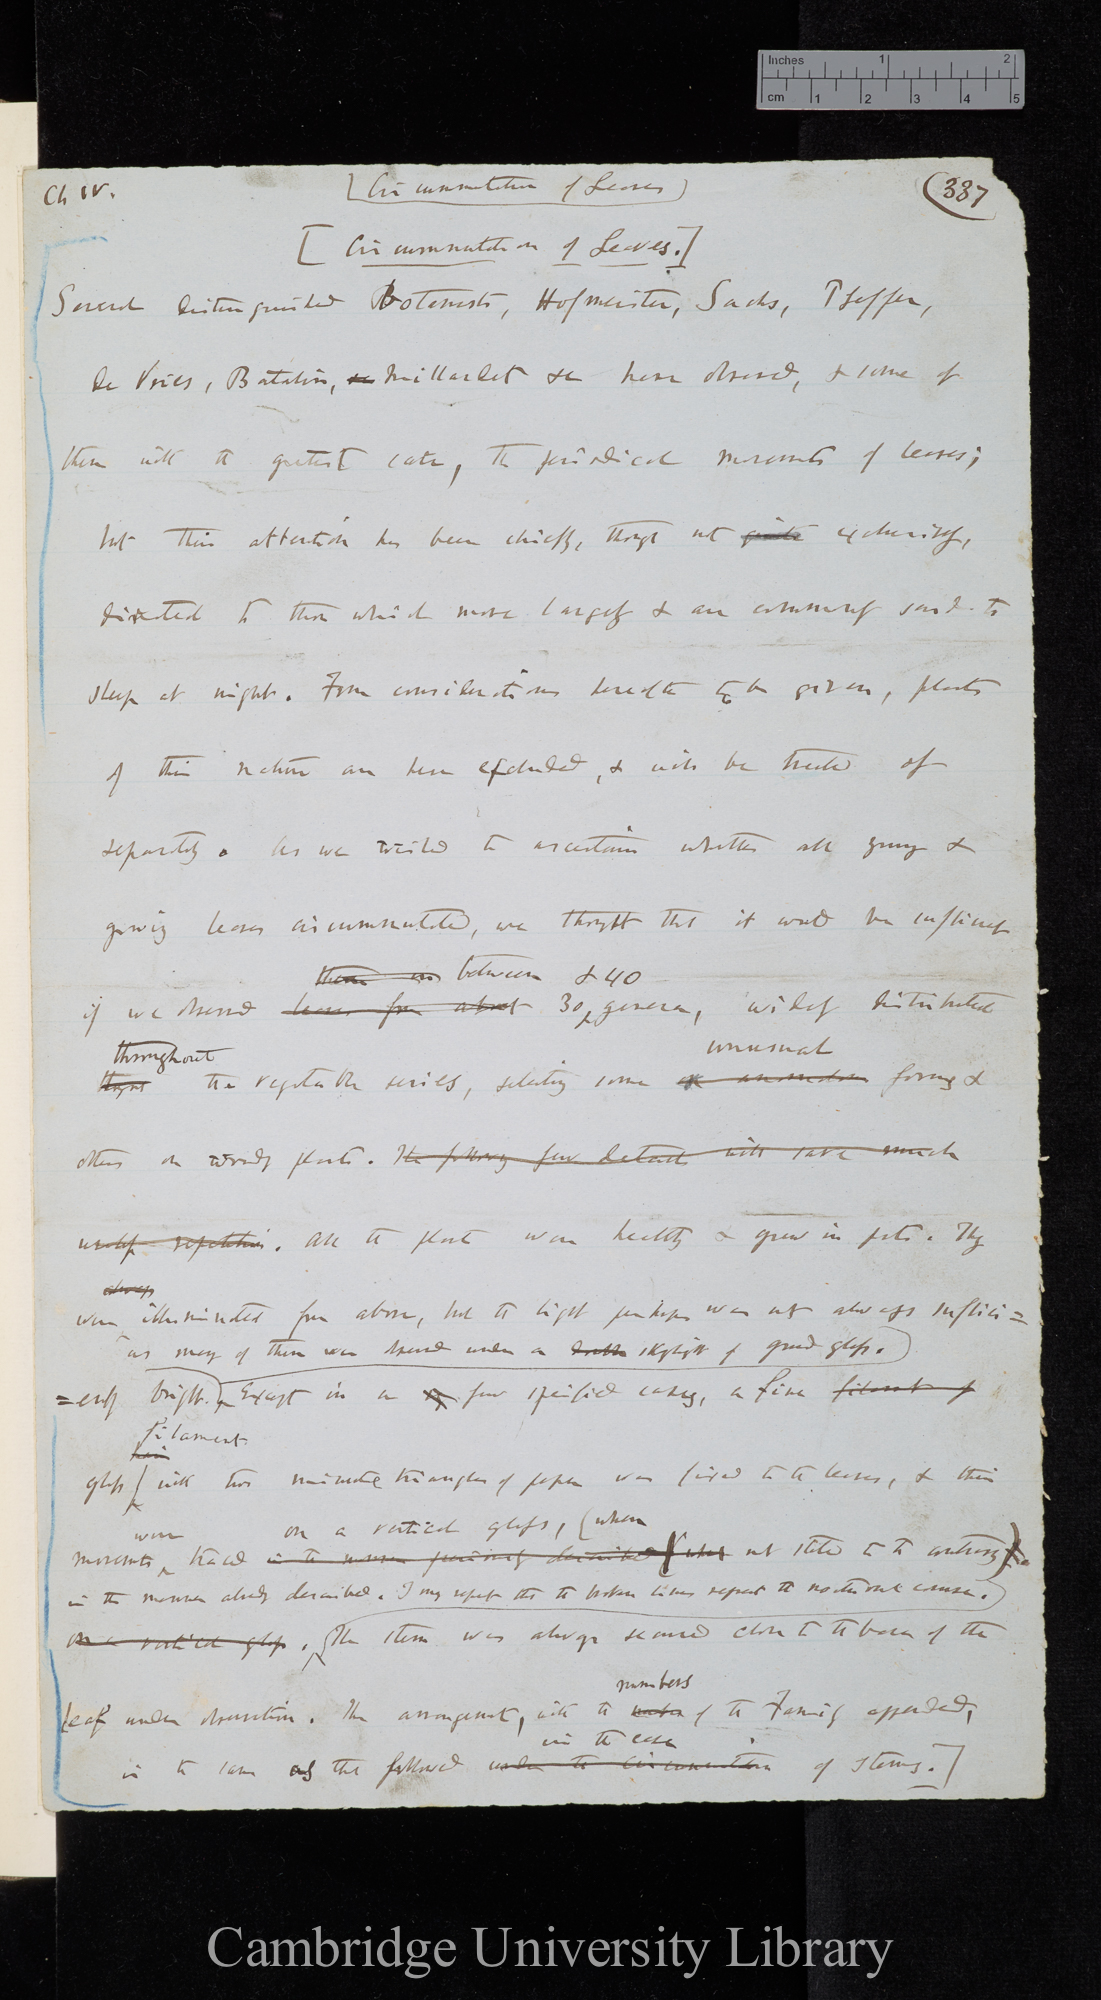 Inches 1 2
cm 1 2 3 4 5
Ch IV. [Circumnutation of Leaves] (337
[Circumnutation of Leaves.]
Several distinguished Botanists, Hofmeister, Sachs, Pfeffer,
De Vries, Batalin, Millardet &c have observed, & some of
them with the greatest care, the periodical movements of leaves;
but their attention has been chiefly, though not quite exclusively,
directed to those which move largely & are commonly said to
sleep at night. From considerations hereafter to be given, plants
of this nature are here excluded, & will be treated of
separately. As we wished to ascertain whether all young &
growing leaves circumnutated, we thought that it would be sufficient
them in between & 40
if we observed leaves from about 30 genera, widely distributed
throughout unusual
the vegetable series, selecting some anomalous forms &
others on woody plants. The following few details will save much
useless repetition. All the plants were healthy & grew in pots. They
always
were illuminated from above, but the light perhaps was not always suffici=
as many of them were observed under a skylight of ground glass.
=ently bright. Except in a few specified cases, a fine filament of
filament
hair
glass with two minute triangles of paper was fixed to the leaves, & their
were on a vertical glass, (when
movements traced in the manner previously described (when not stated to the contrary).
in the manner already described. I may repeat that the broken lines represent the nocturnal course.)
on a vertical glass. The stem was always secured close to the base of the
numbers
leaf under observation. The arrangement, with the of the Family appended,
in the case
is the same as that followed under the circumnutation of stems.]
Cambridge University Library